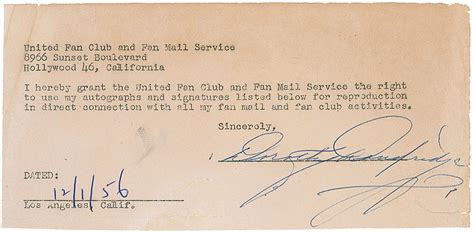 United Fan Club and Fan Mail Service
8966 Sunset Boulevard
Hollywood 46, California
I hereby grant the United Fan Club and Fan Mail Service the right
to use my autographs and signatures listed below for reproduction
in direct connection with all my fan mail and fan club activities.
Sincerely,
Dorothy Dandridge
DATED:
12/1/56
Los Angeles, Calif.